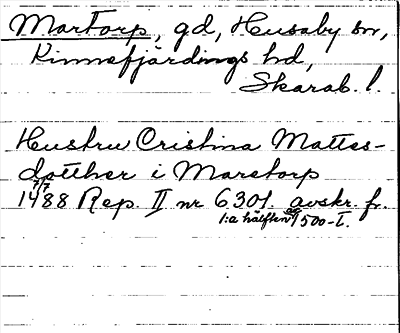 Martorp, gd, Husaby sn,
Kinnefjärdings hd,
Skarab. l.
Hustru Cristina Mattes-
dotther i Marstorp
14 7/7 88 Rep. II nr 6301. avskr. fr.
1:a hälften av 1500-t.